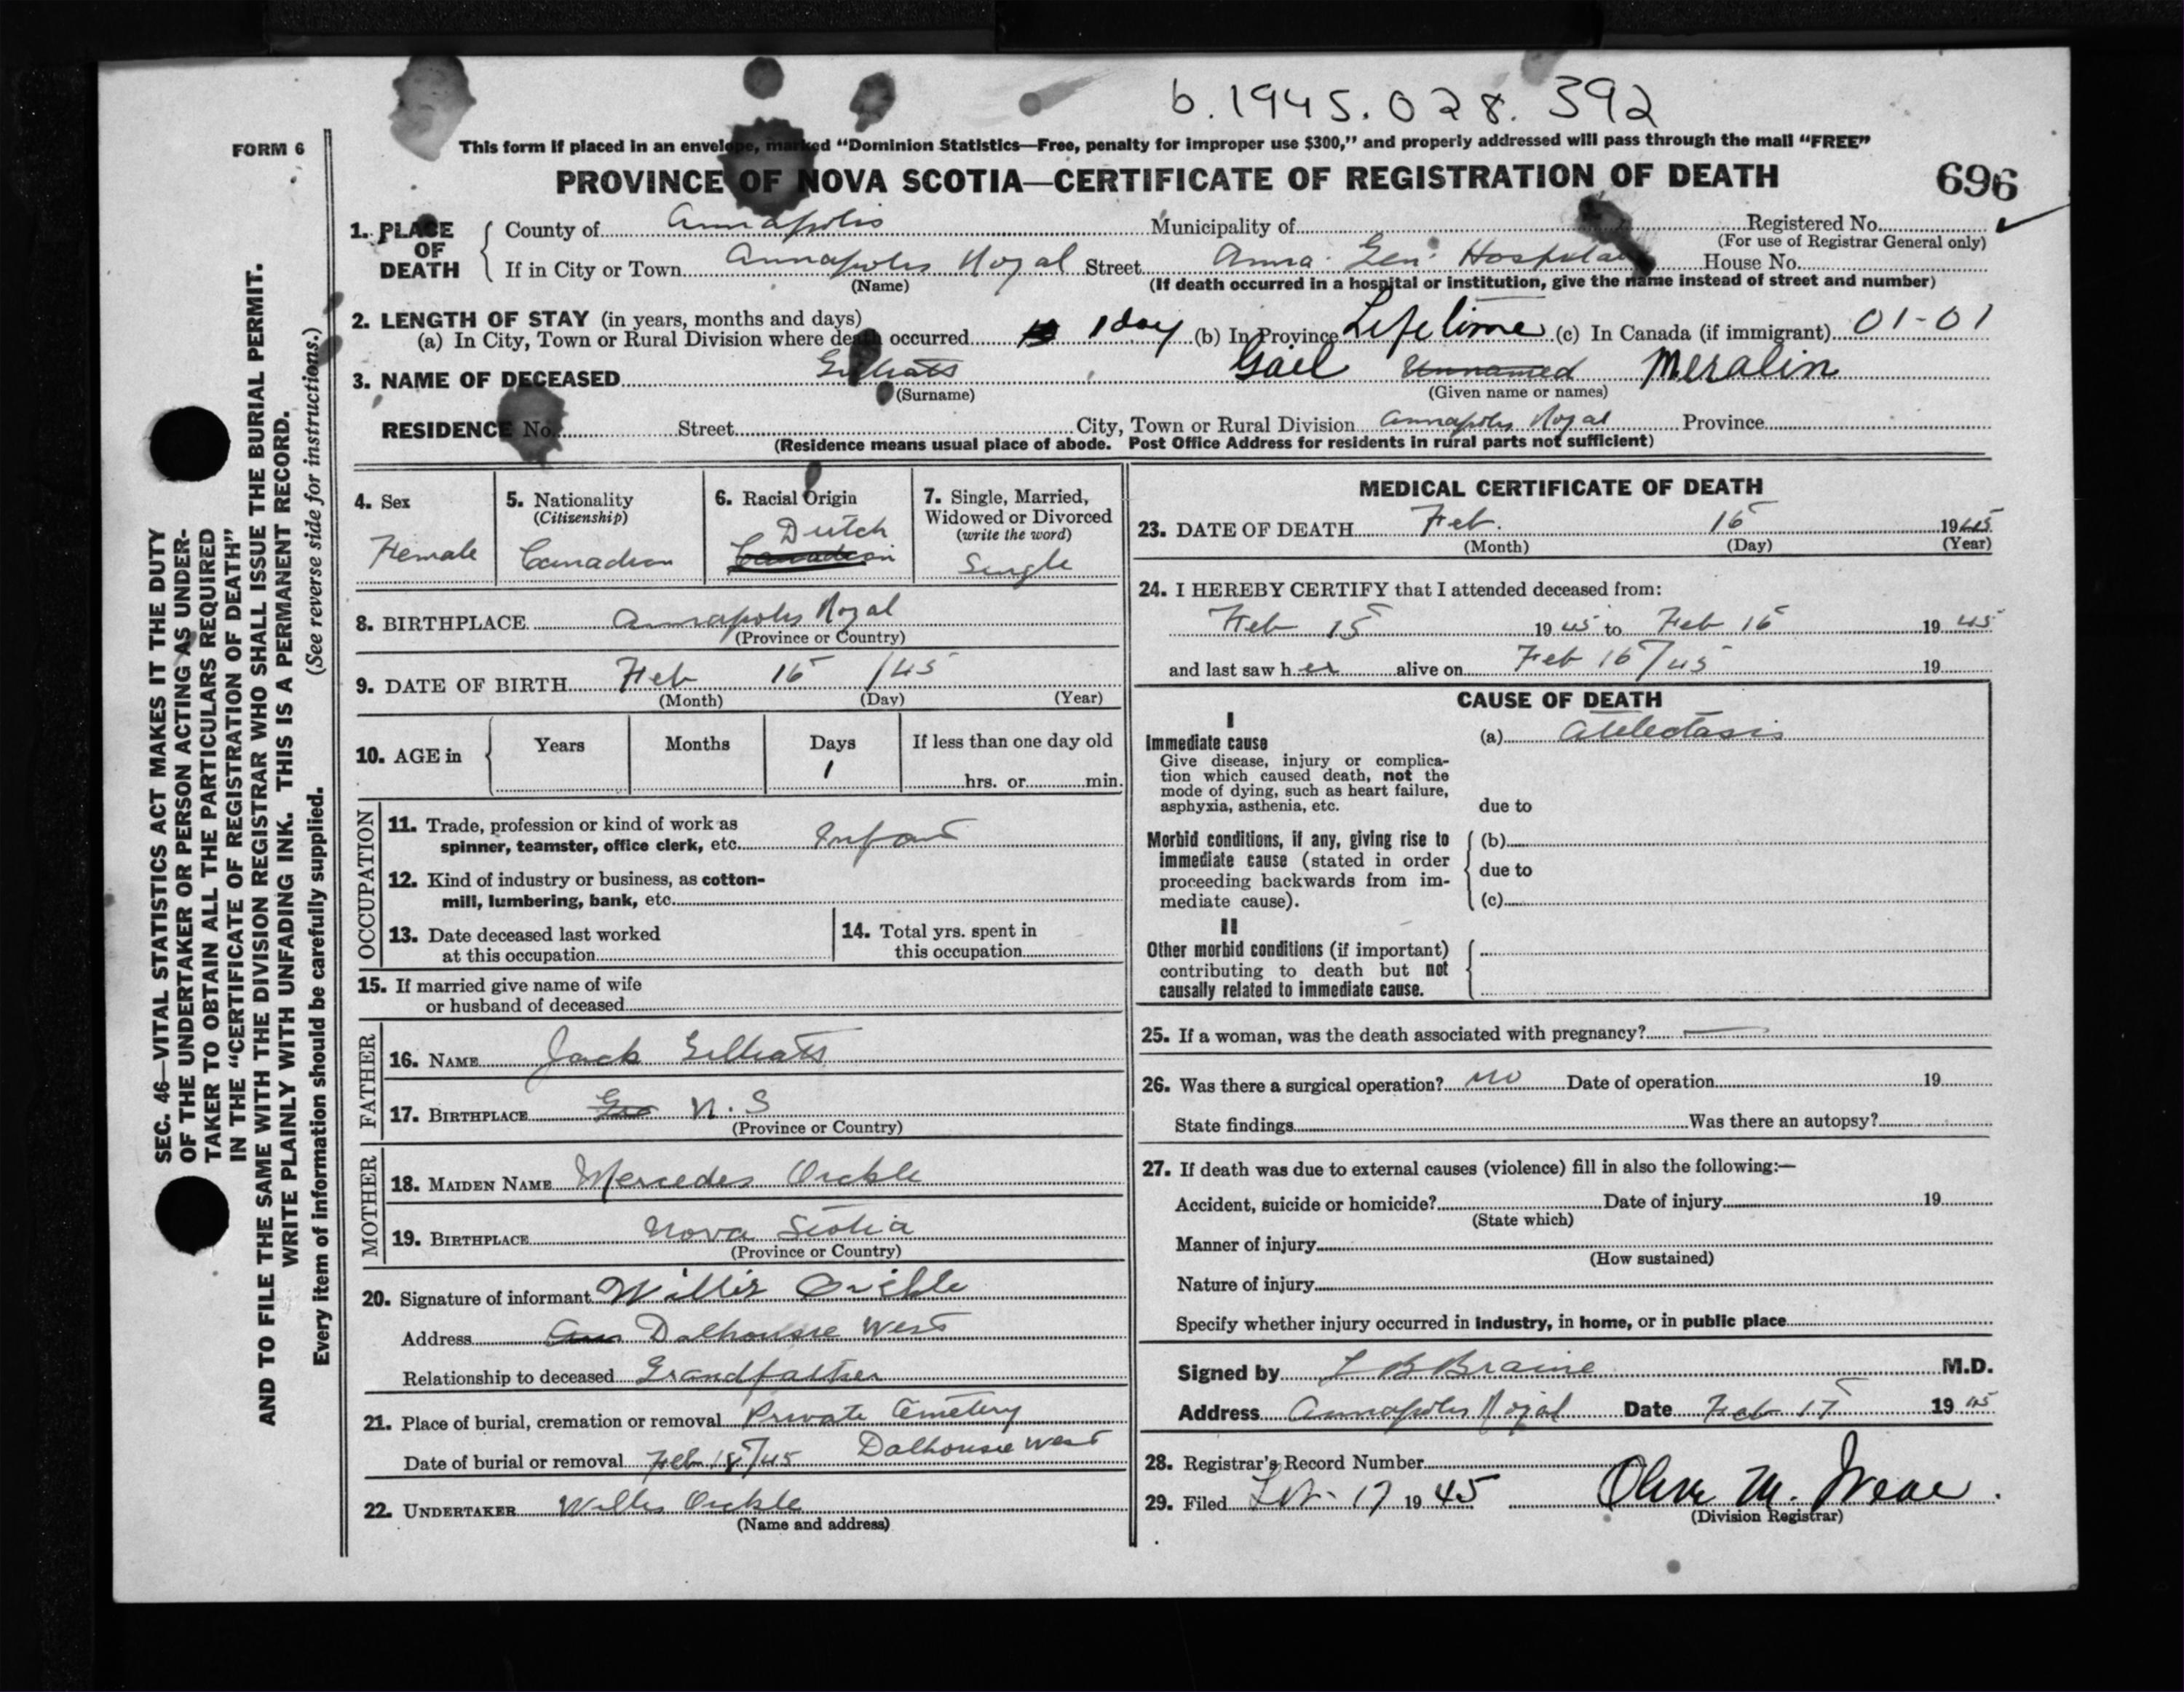 b. 1945. 028. 392
FORM 6
This form if placed in an envelope, marked "Dominion Statistics—Free, penalty for improper use $300," and properly addressed will pass through the mail "FREE"
PROVINCE OF NOVA SCOTIA—CERTIFICATE OF REGISTRATION OF DEATH
696
1. PLACE OF DEATH
County of Annapolis Municipality of Registered No.
(For use of Registrar General only)
If in City or Town Annapolis Royal Street Anna. Gen. Hospital House No.
(Name) (If death occurred in a hospital or institution, give the name instead of street and number)
2. LENGTH OF STAY (in years, months and days)
(a) In City, Town or Rural Division where death occurred 1 day (b) In Province Lifetime (c) In Canada (if immigrant) 01-01
3. NAME OF DECEASED Gilliatt Gail Unnamed Meralin
(Surname) (Given name or names)
RESIDENCE No. Street City, Town or Rural Division Annapolis Royal Province
(Residence means usual place of abode. Post Office Address for residents in rural parts not sufficient)
4. Sex
Female
5. Nationality
(Citizenship)
Canadian
6. Racial Origin
Dutch
Canadian
7. Single, Married,
Widowed or Divorced
(write the word)
Single
8. BIRTHPLACE Annapolis Royal
(Province or Country)
9. DATE OF BIRTH Feb 15 /45
(Month) (Day) (Year)
10. AGE in Years Months Days If less than one day old
1 hrs. or min.
OCCUPATION
11. Trade, profession or kind of work as
spinner, teamster, office clerk, etc. Infant
12. Kind of industry or business, as cotton-
mill, lumbering, bank, etc.
13. Date deceased last worked
at this occupation
14. Total yrs. spent in
this occupation
15. If married give name of wife
or husband of deceased
FATHER
16. NAME Jack Gilliatt
17. BIRTHPLACE N. S
(Province or Country)
MOTHER
18. MAIDEN NAME Mercedes Orckle
19. BIRTHPLACE Nova Scotia
(Province or Country)
20. Signature of informant Willis Orckle
Address Dalhousie West
Relationship to deceased Grandfather
21. Place of burial, cremation or removal Private Cemetery
Date of burial or removal Feb 18/45 Dalhousie West
22. UNDERTAKER Willis Orckle
(Name and address)
MEDICAL CERTIFICATE OF DEATH
23. DATE OF DEATH Feb. 16 1945
(Month) (Day) (Year)
24. I HEREBY CERTIFY that I attended deceased from:
Feb 15 1945 to Feb 16 1945
and last saw her alive on Feb 16/45 19
CAUSE OF DEATH
I
Immediate cause
Give disease, injury or complica-
tion which caused death, not the
mode of dying, such as heart failure,
asphyxia, asthenia, etc.
(a) Atelectasis
due to
Morbid conditions, if any, giving rise to
immediate cause (stated in order
proceeding backwards from im-
mediate cause).
(b)
due to
(c)
II
Other morbid conditions (if important)
contributing to death but not
causally related to immediate cause.
25. If a woman, was the death associated with pregnancy? —
26. Was there a surgical operation? no Date of operation 19
State findings Was there an autopsy?
27. If death was due to external causes (violence) fill in also the following:—
Accident, suicide or homicide? Date of injury 19
(State which)
Manner of injury
(How sustained)
Nature of injury
Specify whether injury occurred in industry, in home, or in public place
Signed by L B Braine M.D.
Address Annapolis Royal Date Feb 17 1945
28. Registrar's Record Number
29. Filed Feb. 17 1945 Olive M.
(Division Registrar)
SEC. 46—VITAL STATISTICS ACT MAKES IT THE DUTY
OF THE UNDERTAKER OR PERSON ACTING AS UNDER-
TAKER TO OBTAIN ALL THE PARTICULARS REQUIRED
IN THE "CERTIFICATE OF REGISTRATION OF DEATH"
AND TO FILE THE SAME WITH THE DIVISION REGISTRAR WHO SHALL ISSUE THE BURIAL PERMIT.
WRITE PLAINLY WITH UNFADING INK. THIS IS A PERMANENT RECORD.
Every item of information should be carefully supplied. (See reverse side for instructions.)